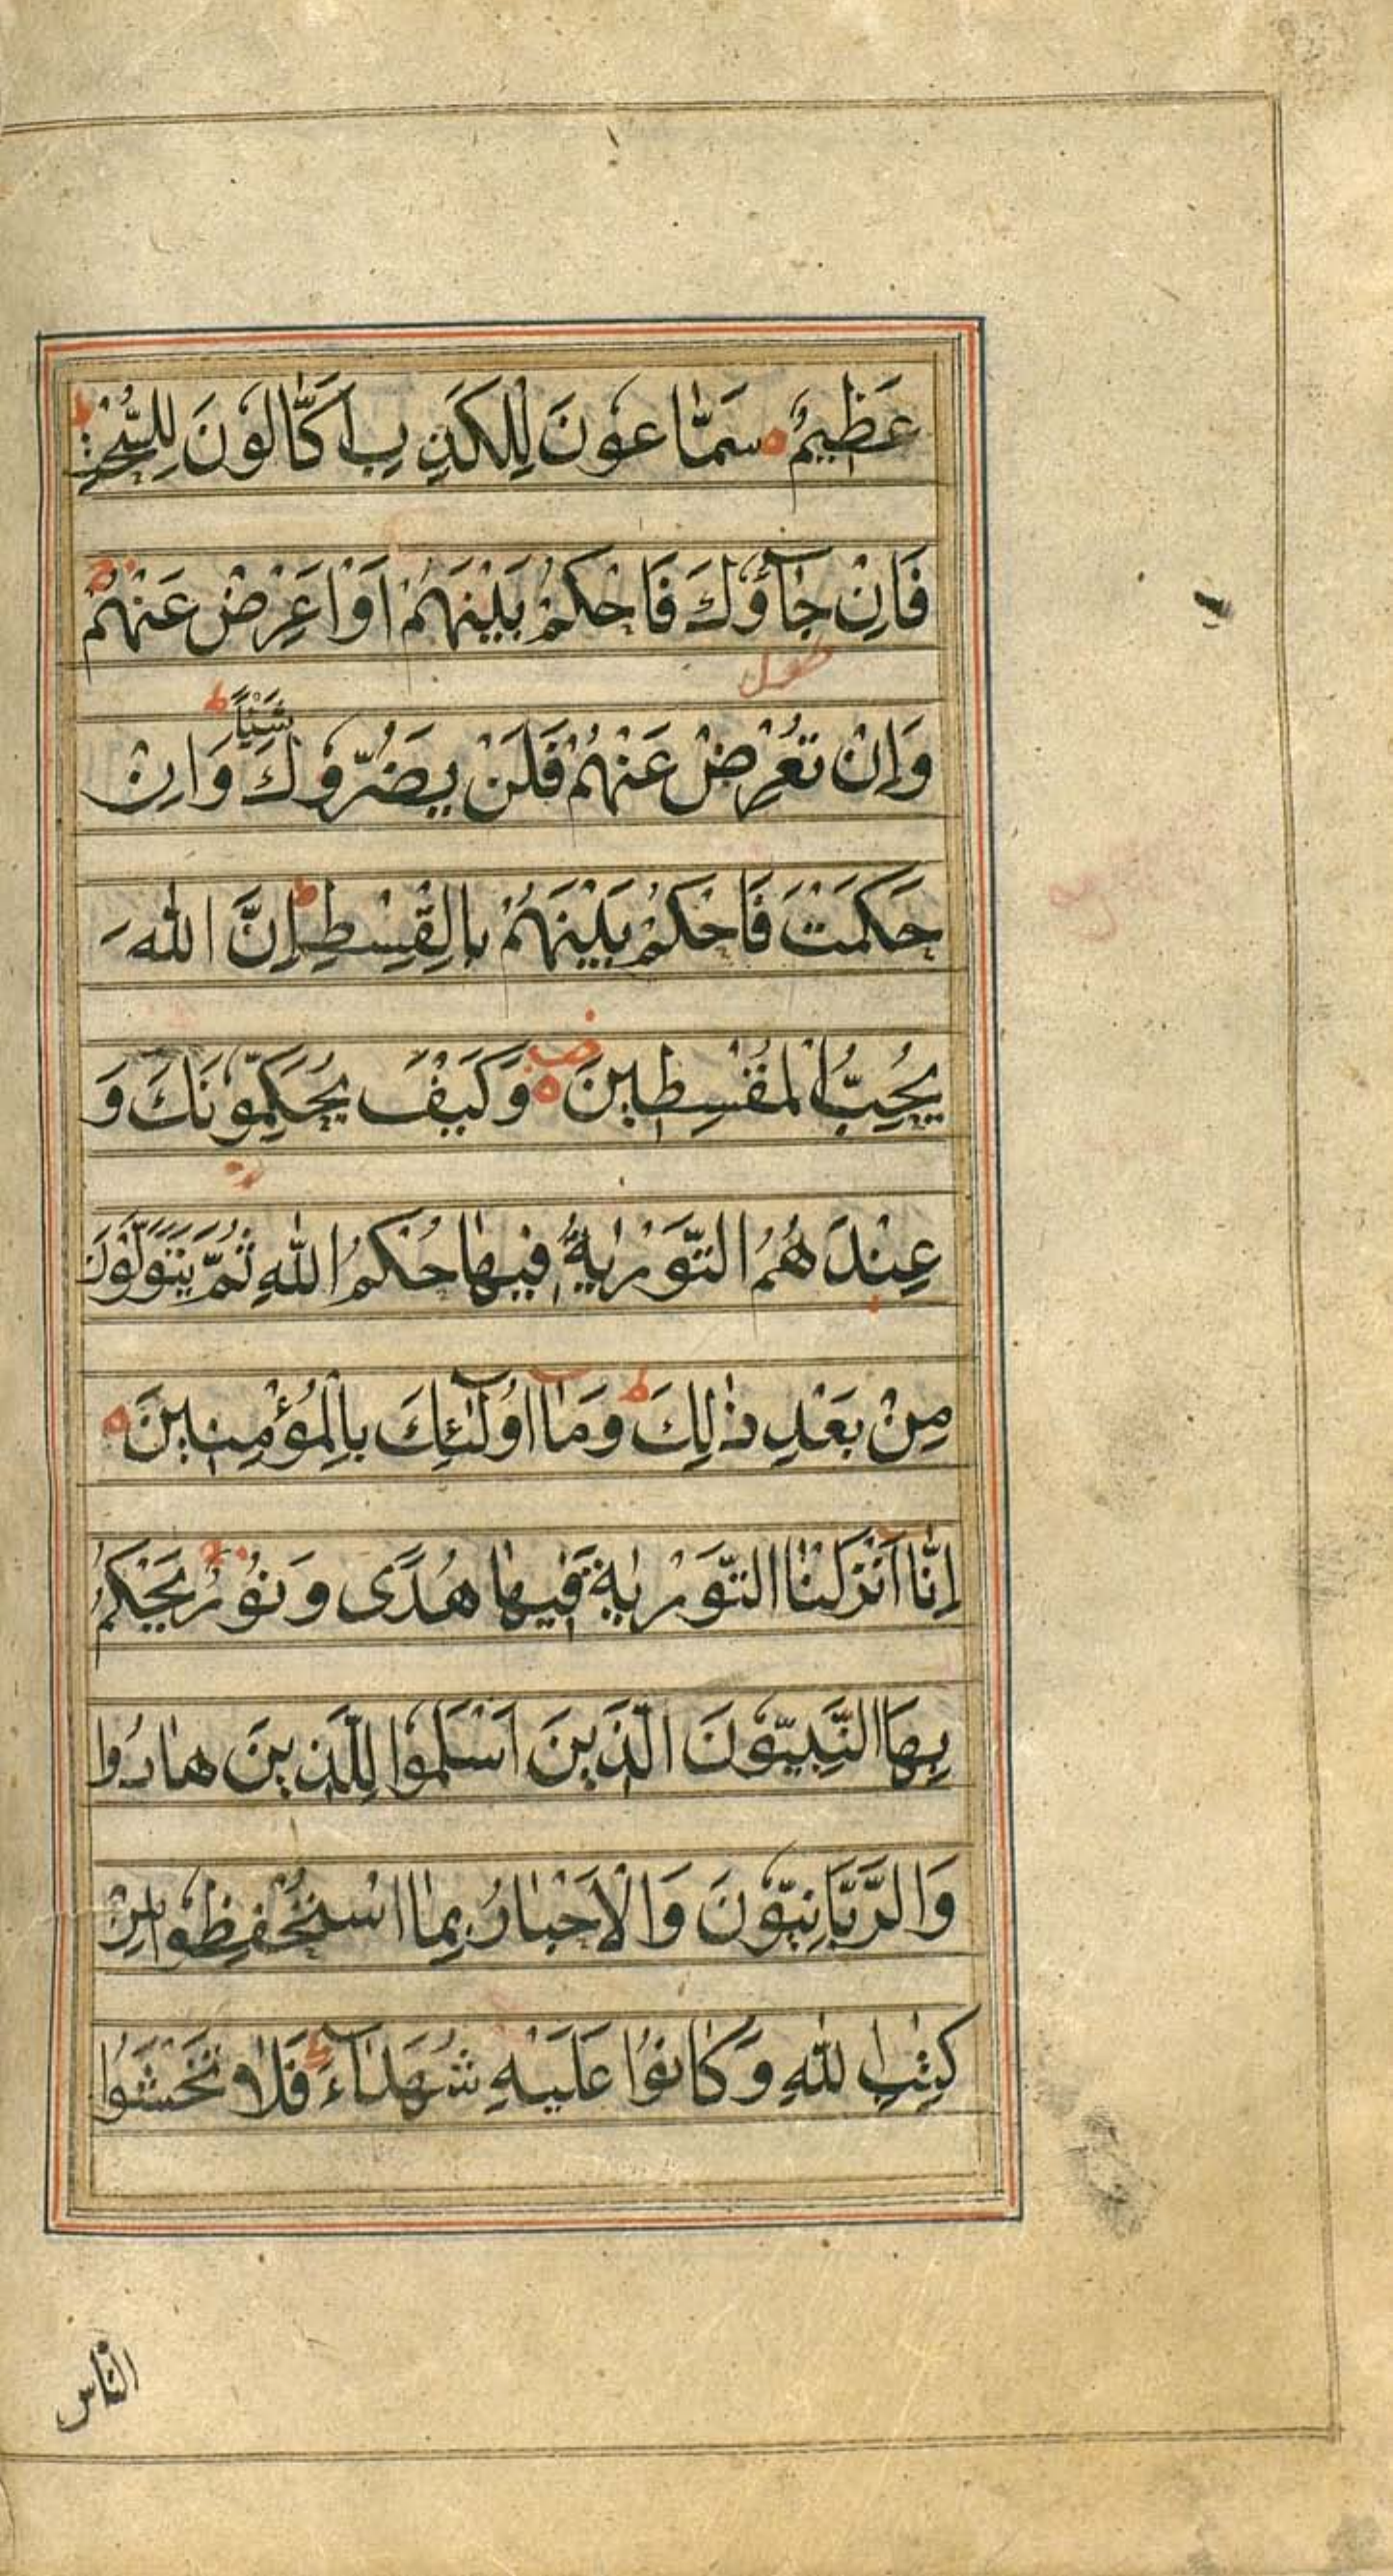 عَظِيمٌ سَمّٰاعُونَ لِلْكَذِبِ اَكّٰالُونَ لِلسُّحْتِ ط
فَاِنْ جٰآؤُكَ فَاحْكُمْ بَيْنَهُمْ اَوْ اَعْرِضْ عَنْهُمْ ج
وَاِنْ تُعْرِضْ عَنْهُمْ فَلَنْ يَضُرُّوكَ شَيْئًا ط وَاِنْ
حَكَمْتَ فَاحْكُمْ بَيْنَهُمْ بِالْقِسْطِ ط اِنَّ اللّٰهَ
يُحِبُّ الْمُقْسِطِينَ وَكَيْفَ يُحَكِّمُونَكَ وَ
عِنْدَهُمُ التَّوْرٰيةُ فِيهٰا حُكْمُ اللّٰهِ ثُمَّ يَتَوَلَّوْنَ
مِنْ بَعْدِ ذٰلِكَ ط وَمٰآ اُولٰٓئِكَ بِالْمُؤْمِنِينَ
اِنّٰا اَنْزَلْنَا التَّوْرٰيةَ فِيهٰا هُدًى وَنُورٌ يَحْكُمُ
بِهَا النَّبِيُّونَ الَّذِينَ اَسْلَمُوا لِلَّذِينَ هٰادُوا
وَالرَّبَّانِيُّونَ وَالْاَحْبٰارُ بِمَا اسْتُحْفِظُوا مِنْ
كِتٰبِ اللّٰهِ وَكٰانُوا عَلَيْهِ شُهَدٰآءَ فَلٰا تَخْشَوُا
الناس